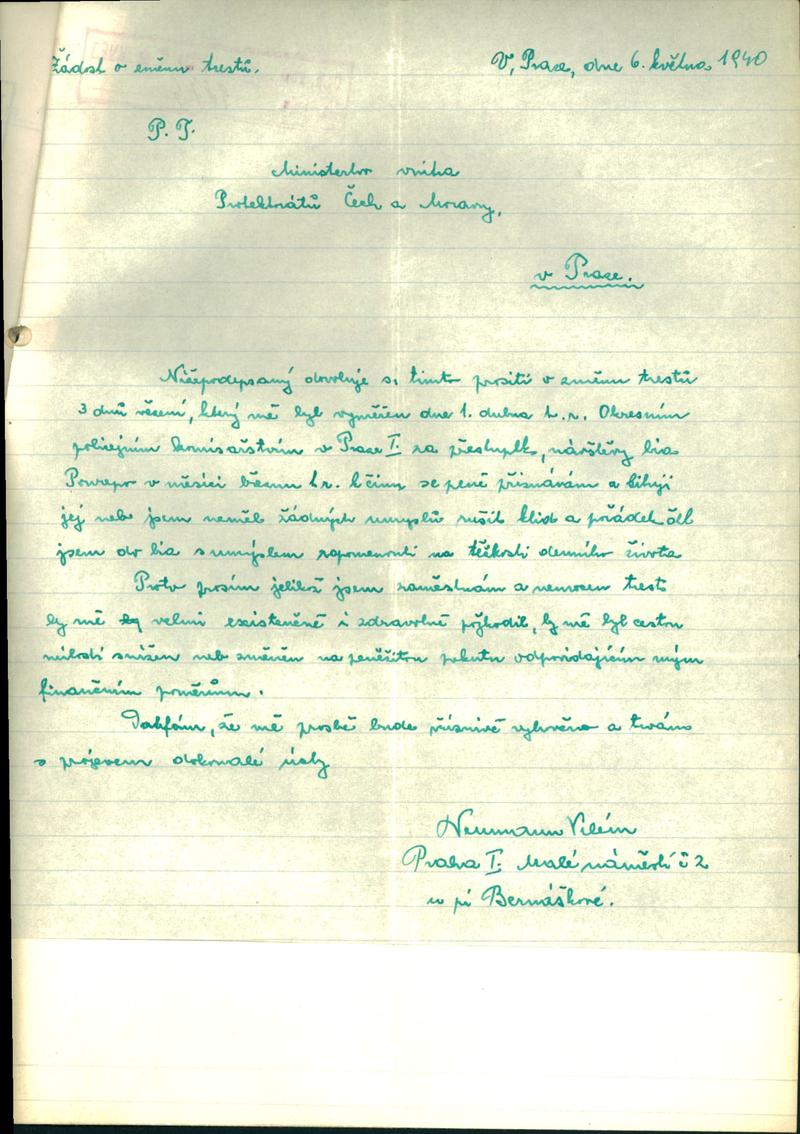 Žádost o změnu trestů.
V, Praze, dne 6. května 1940
P. T.
Ministerstvo vnitra
Protektorátů Čech a Moravy,
v Praze.
Nížepodepsaný dovoluje si tímto prositi o změnu trestů
3 dnů vězení, který mě byl vyměřen dne 1. dubna t. r. Okresním
policejním komisařstvím v Praze I. za přestupek, návštěvy bia
Ponrepo v měsíci březnu t. r. k čemu se plně přiznávám a lituji
jej neb jsem neměl žádných umyslů rušit klid a pořádek šel
jsem do bia s umýslem zapomenouti na těžkosti denního života
Proto prosím jelikož jsem zaměstnám a nemocen trest
by mě velmi existeněně i zdravotně poškodil, by mě byl cestou
milosti snížen neb změněn na peněžitou pokutu odpovídajícím mým
finančním poměrům.
Doufám, že mé prosbě bude příznivě vyhověno a trvám
s projevem dokonalé úcty
Neumann Vilém
Praha I. Malé náměstí č 2
u pí Bernáškové.